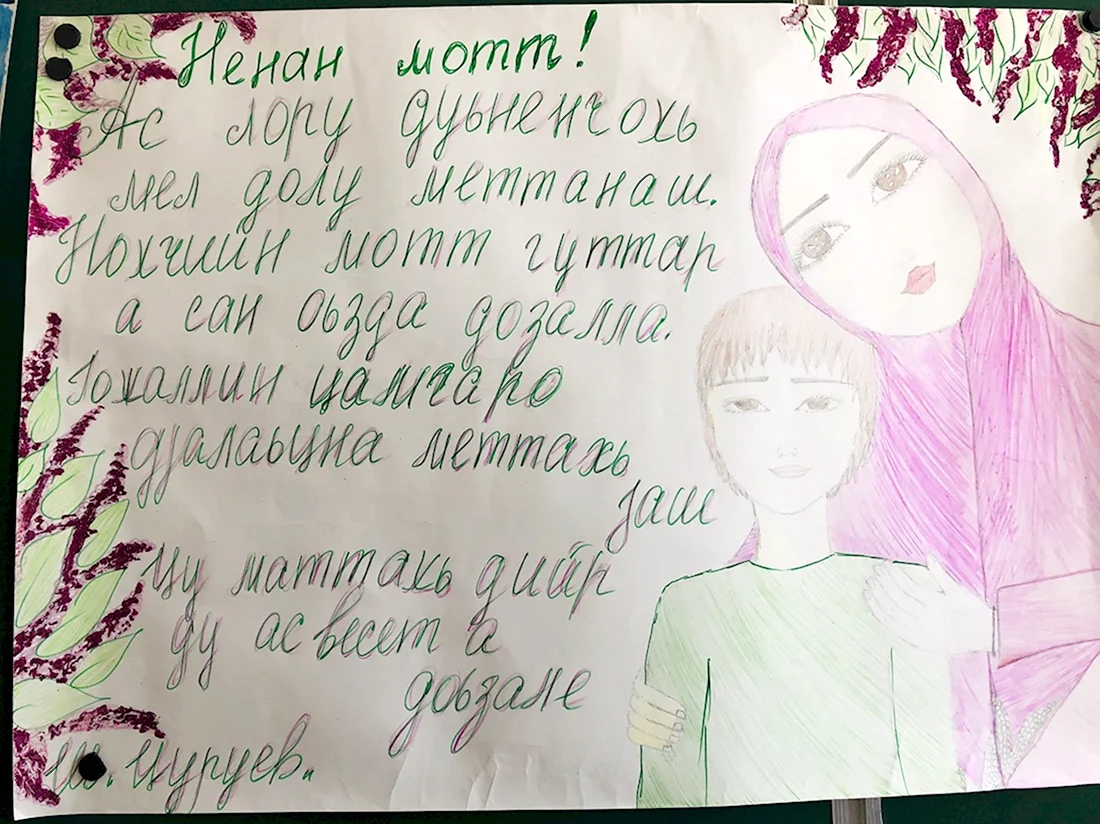 Ненан мотт!
Ас лору дуьненчохь
мел долу меттанаш.
Нохчийн мотт гуттар
а сан оьзда дозалла.
Iожаллин цамгаро
дIалаьцна меттахь
Iаш
Цу маттахь дийр
ду ас весет а
доьзале
Ш. Цуруев.